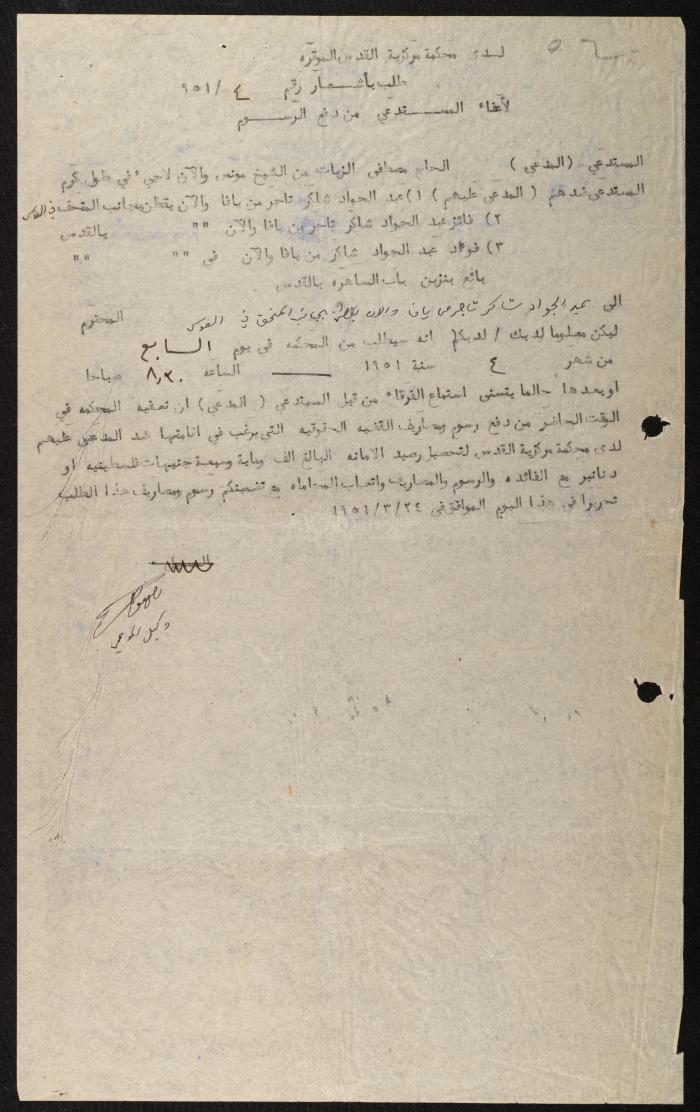 لدى محكمة مركزية القدس الموقره
طلب بأشعار رقم ٤ / ٩٥١
لأعفاء المستدعي من دفع الرسوم
المستدعي (المدعي) الحاج مصطفى الزيات من الشيخ مونس والآن لاجيء في طول كرم
المستدعى ضدهم (المدعى عليهم) ١) عبد الجواد شاكر تاجر من يافا والآن يقطن بجانب المتحف في القدس
٢) فائز عبد الجواد شاكر تاجر من يافا والآن " " بالقدس
٣) فؤاد عبد الجواد شاكر من يافا والآن في " " " "
بائع بنزين باب الساهره بالقدس
الى عبد الجواد شاكر تاجر من يافا والان بجانب المتحف في القدس المحترم
ليكن معلوما لديك / لديكم انه سيطلب من المحكمه في يوم السابع
من شهر ٤ سنة ١٩٥١ الساعه ٨,٣٠ صباحا
او بعدها حالما يتسنى استماع الفرقاء من قبل المستدعي (المدعي) ان تعفيه المحكمه في
الوقت الحاضر من دفع رسوم ومصاريف القضيه الحقوقيه التي يرغب في اقامتها ضد المدعى عليهم
لدى محكمة مركزية القدس لتحصيل رصيد الامانه البالغ الف وماية وسبعة جنيهات فلسطينيه او
دنانير مع الفائده والرسوم والمصاريف واتعاب المحاماه مع تضمينكم رسوم ومصاريف هذا الطلب
تحريرا في هذا اليوم الموافق في ٢٤/٣/١٩٥١
وكيل المدعي